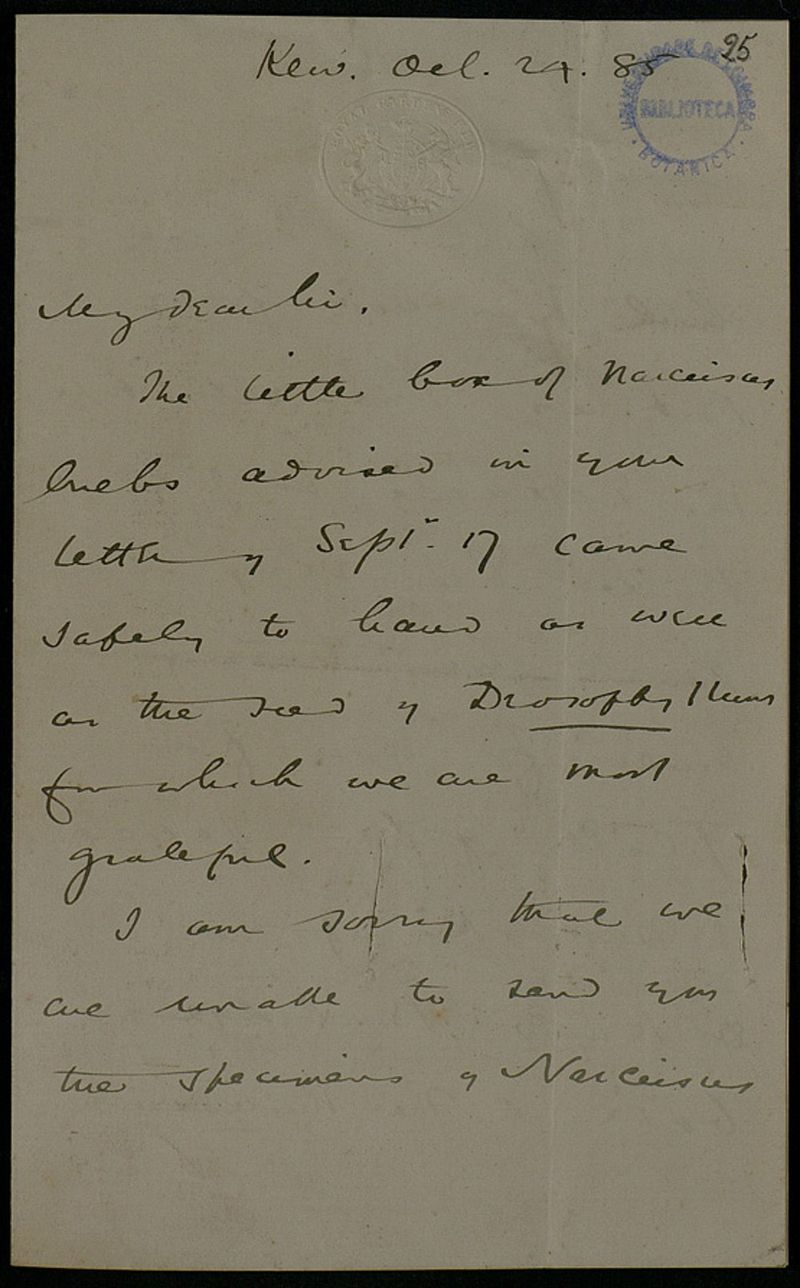 95
Kew. Oct. 24. 85
UNIVERSIDADE DE COIMBRA
BIBLIOTECA
BOTANICA
ROYAL GARDENS KEW
My dear Sir.
The little box of Narcissus
bulbs advised in your
letter of Sept. 17 came
safely to hand as well
as the seed of Drosophyllum
for which we are most
grateful.
I am sorry that we
are unable to send you
the specimens of Narcissus